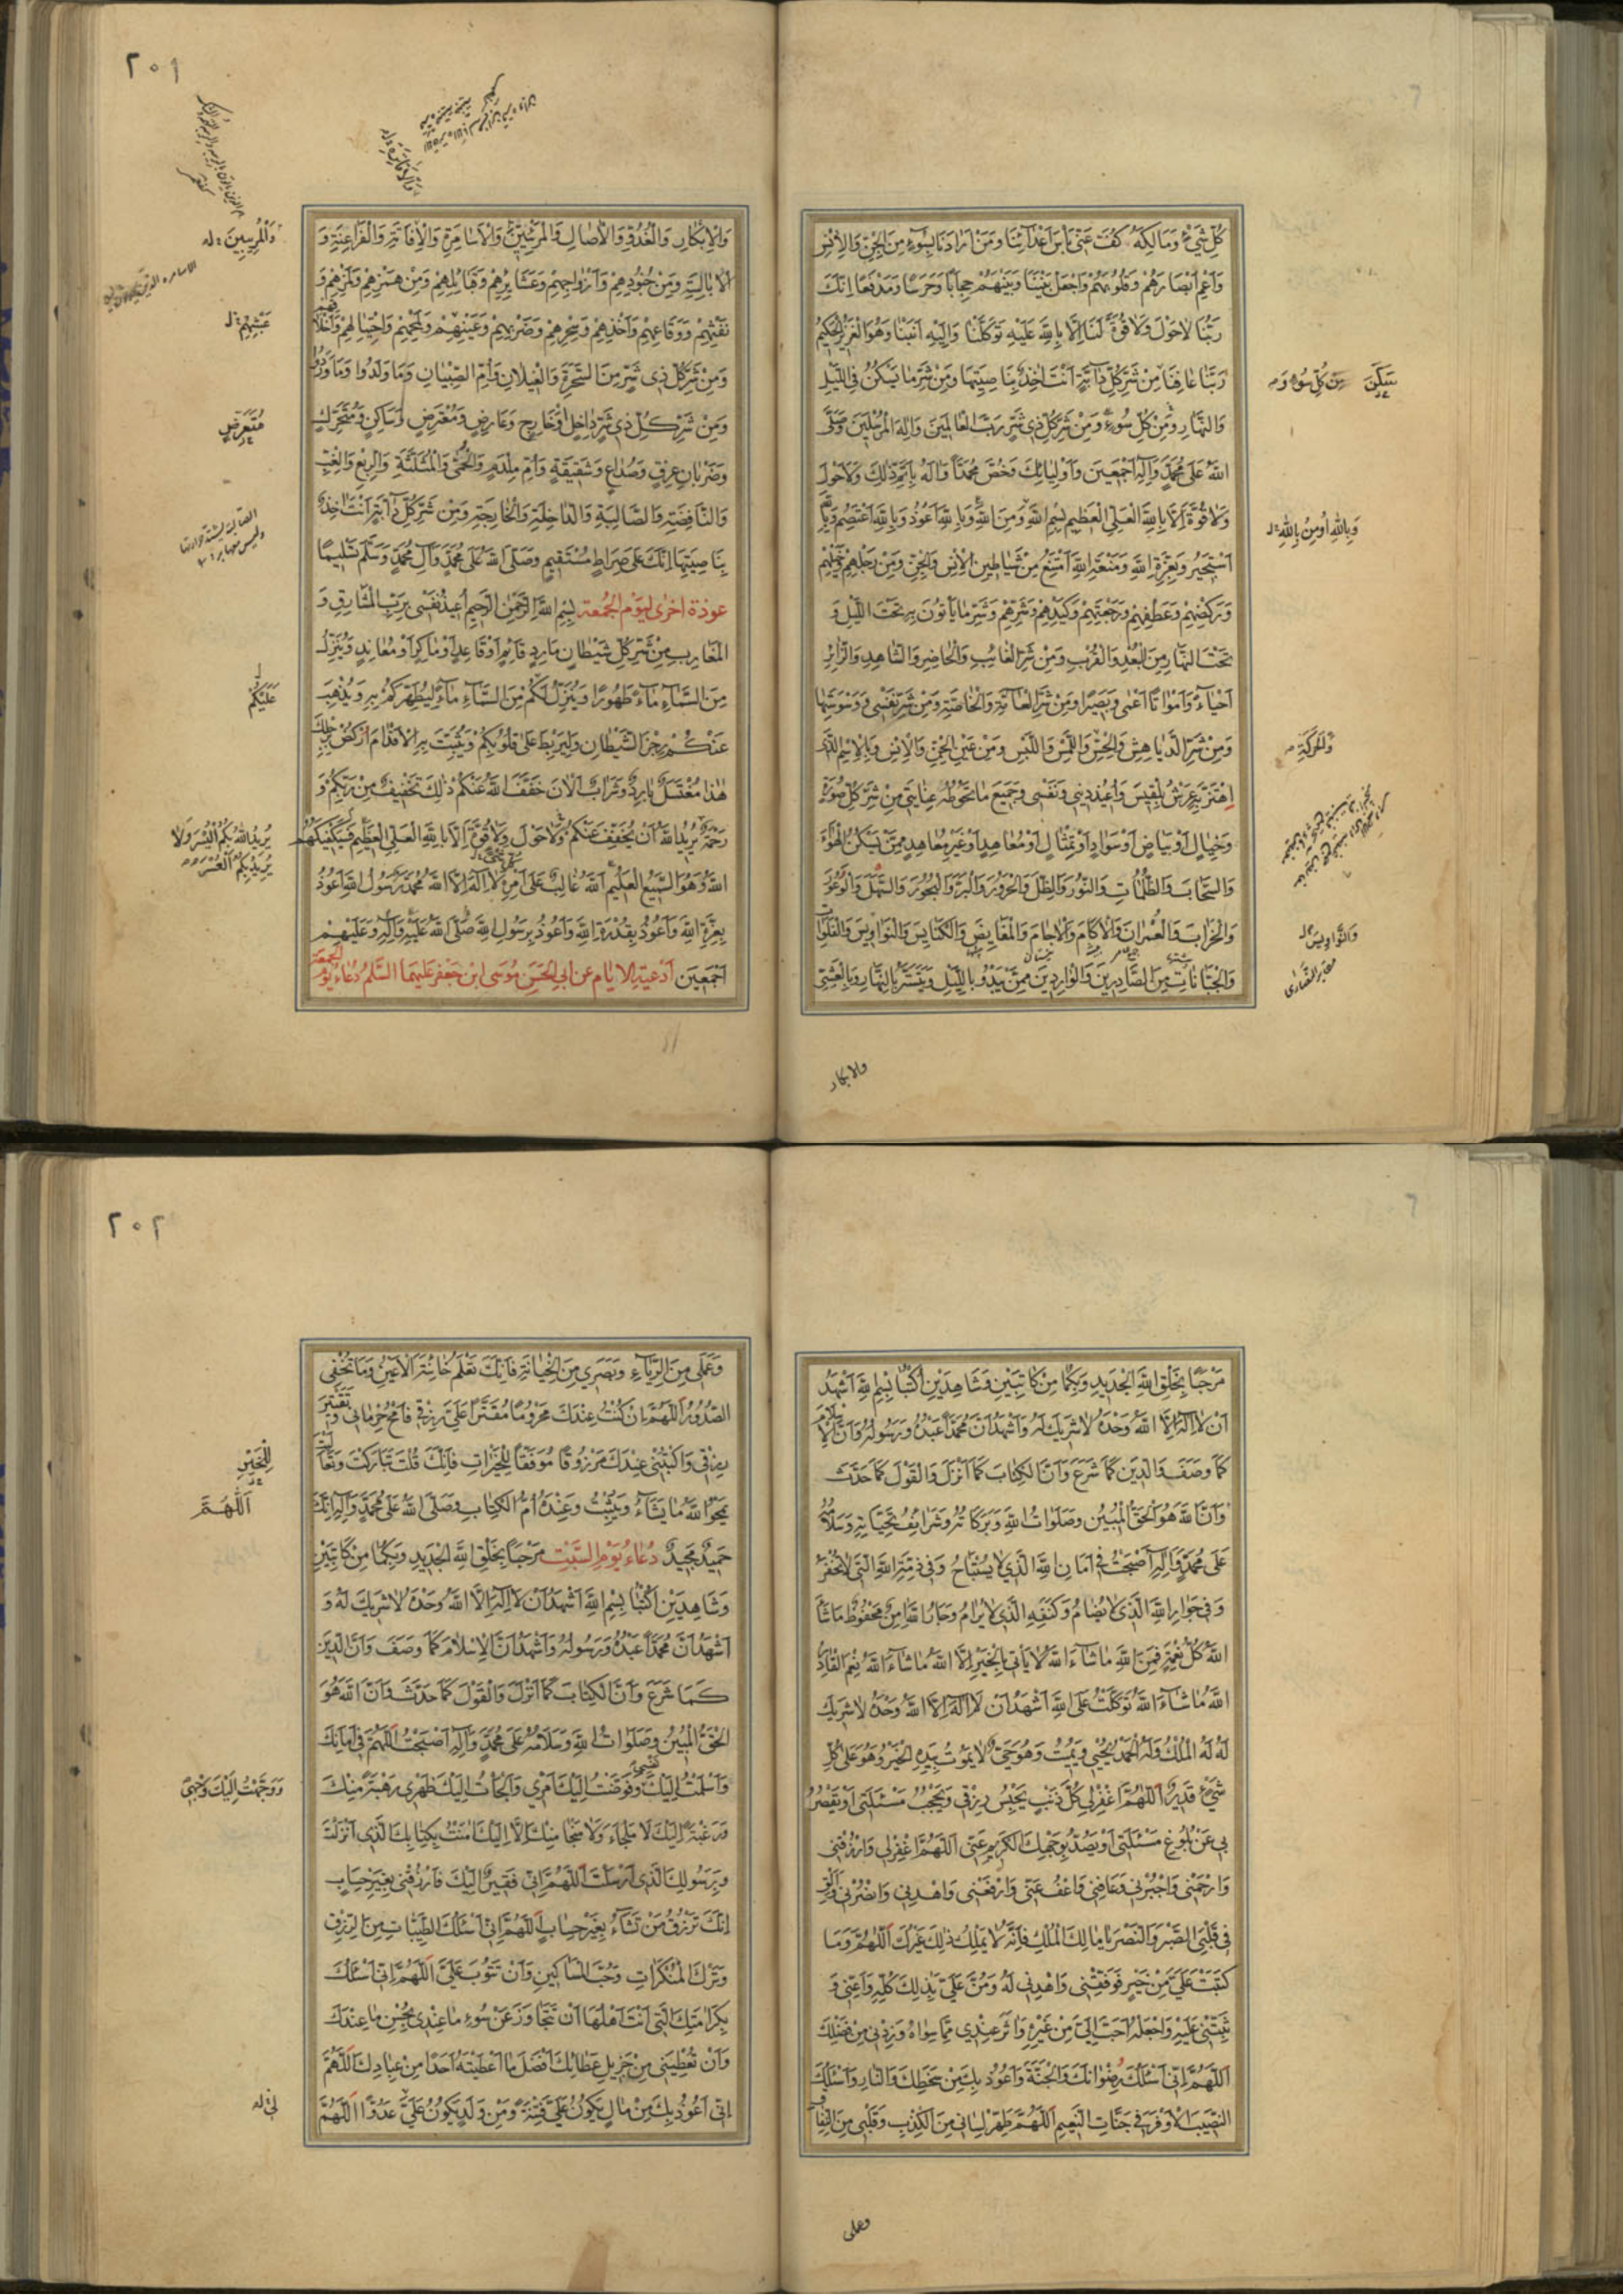 كُلِّ شَيْءٍ وَمَالِكَهُ كُفَّ عَنّٰى بَأْسَ اَعْدٰآئِنٰا وَمَنْ اَرٰادَنٰا بِسُوٓءٍ مِنَ الْجِنِّ وَالْاِنْسِ
وَاَعْمِ اَبْصٰارَهُمْ وَقُلُوبَهُمْ وَاجْعَلْ بَيْنَنٰا وَبَيْنَهُمْ حِجٰابًا وَحَرَسًا وَمَدْفَعًا اِنَّكَ
رَبُّنٰا لٰاحَوْلَ وَلٰا قُوَّةَ لَنٰا اِلّٰا بِاللهِ عَلَيْهِ تَوَكَّلْنٰا وَاِلَيْهِ اَنَبْنٰا وَهُوَ الْعَزِيزُ الْحَكِيمُ
رَبَّنٰا عٰافِنٰا مِنْ شَرِّ كُلِّ دٰآبَّةٍ اَنْتَ اٰخِذٌ بِنٰاصِيَتِهٰا وَمِنْ شَرِّ مٰا يَسْكُنُ فِي اللَّيْلِ
يَسْكُنُ مِنْ كُلِّ سُوٓءٍ وَ
وَالنَّهٰارِ وَمِنْ كُلِّ سُوٓءٍ وَمِنْ شَرِّ كُلِّ ذِي شَرٍّ رَبَّ الْعٰالَمِينَ وَاِلٰهَ الْمُرْسَلِينَ وَصَلَّى
اللهُ عَلىٰ مُحَمَّدٍ وَاٰلِهِ اَجْمَعِينَ وَاَوْلِيٰائِكَ وَخُصَّ مُحَمَّدًا وَاٰلَهُ بِاَتَمِّ ذٰلِكَ وَلٰا حَوْلَ
وَلٰا قُوَّةَ اِلّٰا بِاللهِ الْعَلِيِّ الْعَظِيمِ بِسْمِ اللهِ وَمِنَ اللهِ وَبِاللهِ اَعُوذُ وَبِاللهِ اَعْتَصِمُ وَبِاللهِ
وَبِاللهِ اُومِنُ بِاللهِ
اَسْتَجِيرُ وَبِعِزَّةِ اللهِ وَمَنْعَةِ اللهِ اَمْتَنِعُ مِنْ شَيٰاطِينِ الْاِنْسِ وَالْجِنِّ وَمِنْ رَجْلِهِمْ وَخَيْلِهِمْ
وَرَكْضِهِمْ وَعَطْفِهِمْ وَرَجْعَتِهِمْ وَكَيْدِهِمْ وَشَرِّهِمْ وَشَرِّ مٰا يَأْتُونَ بِهِ تَحْتَ اللَّيْلِ وَ
تَحْتَ النَّهٰارِ مِنَ الْبُعْدِ وَالْقُرْبِ وَمِنْ شَرِّ الْغٰائِبِ وَالْحٰاضِرِ وَالشّٰاهِدِ وَالزّٰائِرِ
اَحْيٰآءً وَاَمْوٰاتًا اَعْمٰى وَبَصِيرًا وَمِنْ شَرِّ الْعٰآمَّةِ وَالْخٰاصَّةِ وَمِنْ شَرِّ نَفْسِي وَوَسْوَسَتِهٰا
وَمِنْ شَرِّ الدَّيٰاهِشِ وَالْحِسِّ وَاللَّمْسِ وَاللُّبْسِ وَمِنْ عَيْنِ الْجِنِّ وَالْاِنْسِ وَبِالْاِسْمِ الَّذِي
وَالْحَرَكَةِ
اهْتَزَّ بِهِ عَرْشُ بِلْقِيسَ وَاُعِيذُ دِينِي وَنَفْسِي وَجَمِيعَ مٰا تَحُوطُهُ عِنٰايَتِي مِنْ شَرِّ كُلِّ صُورَةٍ
وَخَيٰالٍ اَوْ بَيٰاضٍ اَوْ سَوٰادٍ اَوْ تِمْثٰالٍ اَوْ مُعٰاهِدٍ اَوْ غَيْرِ مُعٰاهِدٍ مِمَّنْ يَسْكُنُ الْهَوٰآءَ
وَالسَّحٰابَ وَالظُّلُمٰاتِ وَالنُّورَ وَالظِّلَّ وَالْحَرُورَ وَالْبَرَّ وَالْبُحُورَ وَالسَّهْلَ وَالْوُعُورَ
وَالْخَرٰابَ وَالْعُمْرٰانَ وَالْاٰكٰامَ وَالْاٰجٰامَ وَالْمَغٰايِضَ وَالْكَنٰايِسَ وَالنَّوٰاوِيسَ وَالْفَلَوٰاتِ
وَالنَّوٰاوِيسَ
مقابر النصارى
وَالْجَبّٰانٰاتِ مِنَ الصّٰادِرِينَ وَالْوٰارِدِينَ مِمَّنْ يَبْدُو بِاللَّيْلِ وَيَنْتَشِرُ بِالنَّهٰارِ وَبِالْعَشِيِّ
والابكار
٢٠١
وَالْاِبْكٰارِ وَالْغُدُوِّ وَالْاٰصٰالِ وَالْمُرِيبِينَ وَالْاَسٰامِرَةِ وَالْاَفٰاتِرَةِ وَالْفَرٰاعِنَةِ وَ
وَالْمُرِيبِينَ
الْاَبٰالِسَةِ وَمِنْ جُنُودِهِمْ وَاَزْوٰاجِهِمْ وَعَشٰايِرِهِمْ وَقَبٰائِلِهِمْ وَمِنْ هَمْزِهِمْ وَلَمْزِهِمْ وَ
نَفْثِهِمْ وَوَقٰاعِهِمْ وَاَخْذِهِمْ وَسِحْرِهِمْ وَضَرْبِهِمْ وَعَيْنِهِمْ وَلَمْحِهِمْ وَاحْتِيٰالِهِمْ وَاَخْلٰاقِهِمْ
وَمِنْ شَرِّ كُلِّ ذِي شَرٍّ مِنَ السَّحَرَةِ وَالْغِيلٰانِ وَاُمِّ الصِّبْيٰانِ وَمٰا وَلَدُوا وَمٰا وَرَدُوا
وَمِنْ شَرِّ كُلِّ ذِي شَرٍّ دٰاخِلٍ وَخٰارِجٍ وَعٰارِضٍ وَمُعْرِضٍ وَسٰاكِنٍ وَمُتَحَرِّكٍ
مُتَعَرِّضٍ
وَضَرَبٰانِ عِرْقٍ وَصُدٰاعٍ وَشَقِيقَةٍ وَاُمِّ مِلْدَمٍ وَالْحُمّٰى وَالْمُثَلَّثَةِ وَالرِّبْعِ وَالْغِبِّ
وَالنّٰافِضَةِ وَالصّٰالِبَةِ وَالدّٰاخِلَةِ وَالْخٰارِجَةِ وَمِنْ شَرِّ كُلِّ دٰآبَّةٍ اَنْتَ اٰخِذٌ
بِنٰاصِيَتِهٰا اِنَّكَ عَلىٰ صِرٰاطٍ مُسْتَقِيمٍ وَصَلَّى اللهُ عَلىٰ مُحَمَّدٍ وَاٰلِ مُحَمَّدٍ وَسَلَّمَ تَسْلِيمًا
عوذة اخرى ليوم الجمعة بِسْمِ اللهِ الرَّحْمٰنِ الرَّحِيمِ اُعِيذُ نَفْسِي بِرَبِّ الْمَشٰارِقِ وَ
الْمَغٰارِبِ مِنْ شَرِّ كُلِّ شَيْطٰانٍ مٰارِدٍ قٰائِمٍ اَوْ قٰاعِدٍ اَوْ مٰاكِرٍ اَوْ مُعٰانِدٍ وَيُنَزِّلُ
عَلَيْكُمْ
مِنَ السَّمٰآءِ مٰآءً طَهُورًا وَيُنَزِّلُ لَكُمْ مِنَ السَّمٰآءِ مٰآءً لِيُطَهِّرَكُمْ بِهِ وَيُذْهِبَ
عَنْكُمْ رِجْزَ الشَّيْطٰانِ وَلِيَرْبِطَ عَلىٰ قُلُوبِكُمْ وَيُثَبِّتَ بِهِ الْاَقْدٰامَ اُرْكُضْ بِرِجْلِكَ
هٰذٰا مُغْتَسَلٌ بٰارِدٌ وَشَرٰابٌ اَلْاٰنَ خَفَّفَ اللهُ عَنْكُمْ ذٰلِكَ تَخْفِيفٌ مِنْ رَبِّكُمْ وَ
رَحْمَةٌ يُرِيدُ اللهُ اَنْ يُخَفِّفَ عَنْكُمْ وَلٰا حَوْلَ وَلٰا قُوَّةَ اِلّٰا بِاللهِ الْعَلِيِّ الْعَظِيمِ فَسَيَكْفِيكَهُمُ
يُرِيدُ اللهُ بِكُمُ الْيُسْرَ وَلٰا
يُرِيدُ بِكُمُ الْعُسْرَ
اللهُ وَهُوَ السَّمِيعُ الْعَلِيمُ اللهُ غٰالِبٌ عَلىٰ اَمْرِهِ لٰا اِلٰهَ اِلّٰا اللهُ مُحَمَّدٌ رَسُولُ اللهِ اَعُوذُ
بِعِزَّةِ اللهِ وَاَعُوذُ بِقُدْرَةِ اللهِ وَاَعُوذُ بِرَسُولِ اللهِ صَلَّى اللهُ عَلَيْهِ وَاٰلِهِ وَعَلَيْهِمْ
اَجْمَعِينَ اَدْعِيَةِ الايّٰام عن اَبِي الحَسَنِ مُوسَى ابْنِ جَعْفَرٍ عَلَيْهِمَا السَّلٰمُ دُعٰاءُ يَوْمِ الجمعة
مَرْحَبًا بِخَلْقِ اللهِ الْجَدِيدِ وَبِكُمٰا مِنْ كٰاتِبَيْنِ وَشٰاهِدَيْنِ اُكْتُبٰا بِسْمِ اللهِ اَشْهَدُ
اَنْ لٰا اِلٰهَ اِلّٰا اللهُ وَحْدَهُ لٰا شَرِيكَ لَهُ وَاَشْهَدُ اَنَّ مُحَمَّدًا عَبْدُهُ وَرَسُولُهُ وَاَنَّ الْاِسْلٰامَ
كَمٰا وَصَفَ وَالدِّينَ كَمٰا شَرَعَ وَاَنَّ الْكِتٰابَ كَمٰا اَنْزَلَ وَالْقَوْلَ كَمٰا حَدَّثَ
وَاَنَّ اللهَ هُوَ الْحَقُّ الْمُبِينُ وَصَلَوٰاتُ اللهِ وَبَرَكٰاتُهُ وَشَرٰايِفُ تَحِيّٰاتِهِ وَسَلٰامُهُ
عَلىٰ مُحَمَّدٍ وَاٰلِهِ اَصْبَحْتُ فِي اَمٰانِ اللهِ الَّذِي لٰا يُسْتَبٰاحُ وَفِي ذِمَّةِ اللهِ الَّتِي لٰا تُخْفَرُ
وَفِي جِوٰارِ اللهِ الَّذِي لٰا يُضٰامُ وَكَنَفِهِ الَّذِي لٰا يُرٰامُ وَجٰارُ اللهِ اٰمِنٌ مَحْفُوظٌ مٰا شٰآءَ
اللهُ كُلُّ نِعْمَةٍ فَمِنَ اللهِ مٰا شٰآءَ اللهُ لٰا يَأْتِي بِالْخَيْرِ اِلّٰا اللهُ مٰا شٰآءَ اللهُ نِعْمَ الْقٰادِرُ
اللهُ مٰا شٰآءَ اللهُ تَوَكَّلْتُ عَلَى اللهِ اَشْهَدُ اَنْ لٰا اِلٰهَ اِلّٰا اللهُ وَحْدَهُ لٰا شَرِيكَ
لَهُ لَهُ الْمُلْكُ وَلَهُ الْحَمْدُ يُحْيِي وَيُمِيتُ وَهُوَ حَيٌّ لٰا يَمُوتُ بِيَدِهِ الْخَيْرُ وَهُوَ عَلىٰ كُلِّ
شَيْءٍ قَدِيرٌ اَللّٰهُمَّ اغْفِرْ لِي كُلَّ ذَنْبٍ يَحْبِسُ رِزْقِي وَيَحْجُبُ مَسْئَلَتِي اَوْ يَقْصُرُ
بِي عَنْ بُلُوغِ مَسْئَلَتِي اَوْ يَصُدُّ بِوَجْهِكَ الْكَرِيمِ عَنِّي اَللّٰهُمَّ اغْفِرْ لِي وَارْزُقْنِي
وَارْحَمْنِي وَاجْبُرْنِي وَعٰافِنِي وَاعْفُ عَنِّي وَارْفَعْنِي وَاهْدِنِي وَانْصُرْنِي وَاَلْقِ
فِي قَلْبِي الصَّبْرَ وَالنَّصْرَ يٰا مٰالِكَ الْمُلْكِ فَاِنَّهُ لٰا يَمْلِكُ ذٰلِكَ غَيْرُكَ اَللّٰهُمَّ وَمٰا
كَتَبْتَ عَلَيَّ مِنْ خَيْرٍ فَوَفِّقْنِي وَاهْدِنِي لَهُ وَمُنَّ عَلَيَّ بِذٰلِكَ كُلِّهِ وَاَعِنِّي وَ
ثَبِّتْنِي عَلَيْهِ وَاجْعَلْهُ اَحَبَّ اِلَيَّ مِنْ غَيْرِهِ وَاٰثَرَ عِنْدِي مِمّٰا سِوٰاهُ وَزِدْنِي مِنْ فَضْلِكَ
اَللّٰهُمَّ اِنِّي اَسْئَلُكَ رِضْوٰانَكَ وَالْجَنَّةَ وَاَعُوذُ بِكَ مِنْ سَخَطِكَ وَالنّٰارِ وَاَسْئَلُكَ
النَّصِيبَ الْاَوْفَرَ فِي جَنّٰاتِ النَّعِيمِ اَللّٰهُمَّ طَهِّرْ لِسٰانِي مِنَ الْكَذِبِ وَقَلْبِي مِنَ النِّفٰاقِ
وعملى
٢٠٢
وَعَمَلِي مِنَ الرِّيٰآءِ وَبَصَرِي مِنَ الْخِيٰانَةِ فَاِنَّكَ تَعْلَمُ خٰائِنَةَ الْاَعْيُنِ وَمٰا تُخْفِي
الصُّدُورُ اَللّٰهُمَّ اِنْ كُنْتُ عِنْدَكَ مَحْرُومًا مُقَتَّرًا عَلَيَّ رِزْقِي فَامْحُ حِرْمٰانِي وَتَقْتِيرَ
رِزْقِي وَاكْتُبْنِي عِنْدَكَ مَرْزُوقًا مُوَفَّقًا لِلْخَيْرٰاتِ فَاِنَّكَ قُلْتَ تَبٰارَكْتَ وَتَعٰالَيْتَ
لِلْخَيْرِ
اَللّٰهُمَّ
يَمْحُو اللهُ مٰا يَشٰآءُ وَيُثْبِتُ وَعِنْدَهُ اُمُّ الْكِتٰابِ وَصَلَّى اللهُ عَلىٰ مُحَمَّدٍ وَاٰلِهِ اِنَّكَ
حَمِيدٌ مَجِيدٌ دُعٰاءُ يَوْمِ السَّبْتِ مَرْحَبًا بِخَلْقِ اللهِ الْجَدِيدِ وَبِكُمٰا مِنْ كٰاتِبَيْنِ
وَشٰاهِدَيْنِ اُكْتُبٰا بِسْمِ اللهِ اَشْهَدُ اَنْ لٰا اِلٰهَ اِلّٰا اللهُ وَحْدَهُ لٰا شَرِيكَ لَهُ وَ
اَشْهَدُ اَنَّ مُحَمَّدًا عَبْدُهُ وَرَسُولُهُ وَاَشْهَدُ اَنَّ الْاِسْلٰامَ كَمٰا وَصَفَ وَاَنَّ الدِّينَ
كَمٰا شَرَعَ وَاَنَّ الْكِتٰابَ كَمٰا اَنْزَلَ وَالْقَوْلَ كَمٰا حَدَّثَ وَاَنَّ اللهَ هُوَ
الْحَقُّ الْمُبِينُ وَصَلَوٰاتُ اللهِ وَسَلٰامُهُ عَلىٰ مُحَمَّدٍ وَاٰلِهِ اَصْبَحْتُ اللّٰهُمَّ فِي اَمٰانِكَ
وَاَسْلَمْتُ اِلَيْكَ نَفْسِي وَفَوَّضْتُ اِلَيْكَ اَمْرِي وَاَلْجَأْتُ اِلَيْكَ ظَهْرِي رَهْبَةً مِنْكَ
وَوَجَّهْتُ اِلَيْكَ وَجْهِي
وَرَغْبَةً اِلَيْكَ لٰا مَلْجَاءَ وَلٰا مَنْجٰا مِنْكَ اِلّٰا اِلَيْكَ اٰمَنْتُ بِكِتٰابِكَ الَّذِي اَنْزَلْتَ
وَبِرَسُولِكَ الَّذِي اَرْسَلْتَ اَللّٰهُمَّ اِنِّي فَقِيرٌ اِلَيْكَ فَارْزُقْنِي بِغَيْرِ حِسٰابٍ
اِنَّكَ تَرْزُقُ مَنْ تَشٰآءُ بِغَيْرِ حِسٰابٍ اَللّٰهُمَّ اِنِّي اَسْئَلُكَ الطَّيِّبٰاتِ مِنَ الرِّزْقِ
وَتَرْكَ الْمُنْكَرٰاتِ وَحُبَّ الْمَسٰاكِينِ وَاَنْ تَتُوبَ عَلَيَّ اَللّٰهُمَّ اِنِّي اَسْئَلُكَ
بِكَرٰامَتِكَ الَّتِي اَنْتَ اَهْلُهٰا اَنْ تَجٰاوَزَ عَنْ سُوءِ مٰا عِنْدِي بِحُسْنِ مٰا عِنْدَكَ
وَاَنْ تُعْطِيَنِي مِنْ جَزِيلِ عَطٰائِكَ اَفْضَلَ مٰا اَعْطَيْتَهُ اَحَدًا مِنْ عِبٰادِكَ اَللّٰهُمَّ
اِنِّي اَعُوذُ بِكَ مِنْ مٰالٍ يَكُونُ عَلَيَّ فِتْنَةً وَمِنْ وَلَدٍ يَكُونُ عَلَيَّ عَدُوًّا اَللّٰهُمَّ
لي